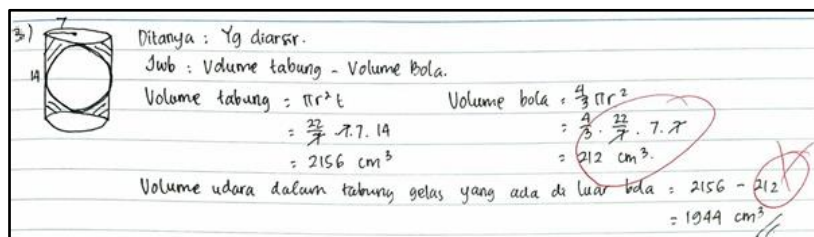 3) 7
Ditanya : Yg diarsir.
14
Jwb : Volume tabung - Volume Bola.
Volume tabung : πr² t Volume bola = 4/3 πr²
= 22/7 . 7 . 7 . 14 = 4/3 . 22/7 . 7 . 7
= 2156 cm³ = 212 cm³.
Volume udara dalam tabung gelas yang ada di luar bola = 2156 - 212
= 1944 cm³